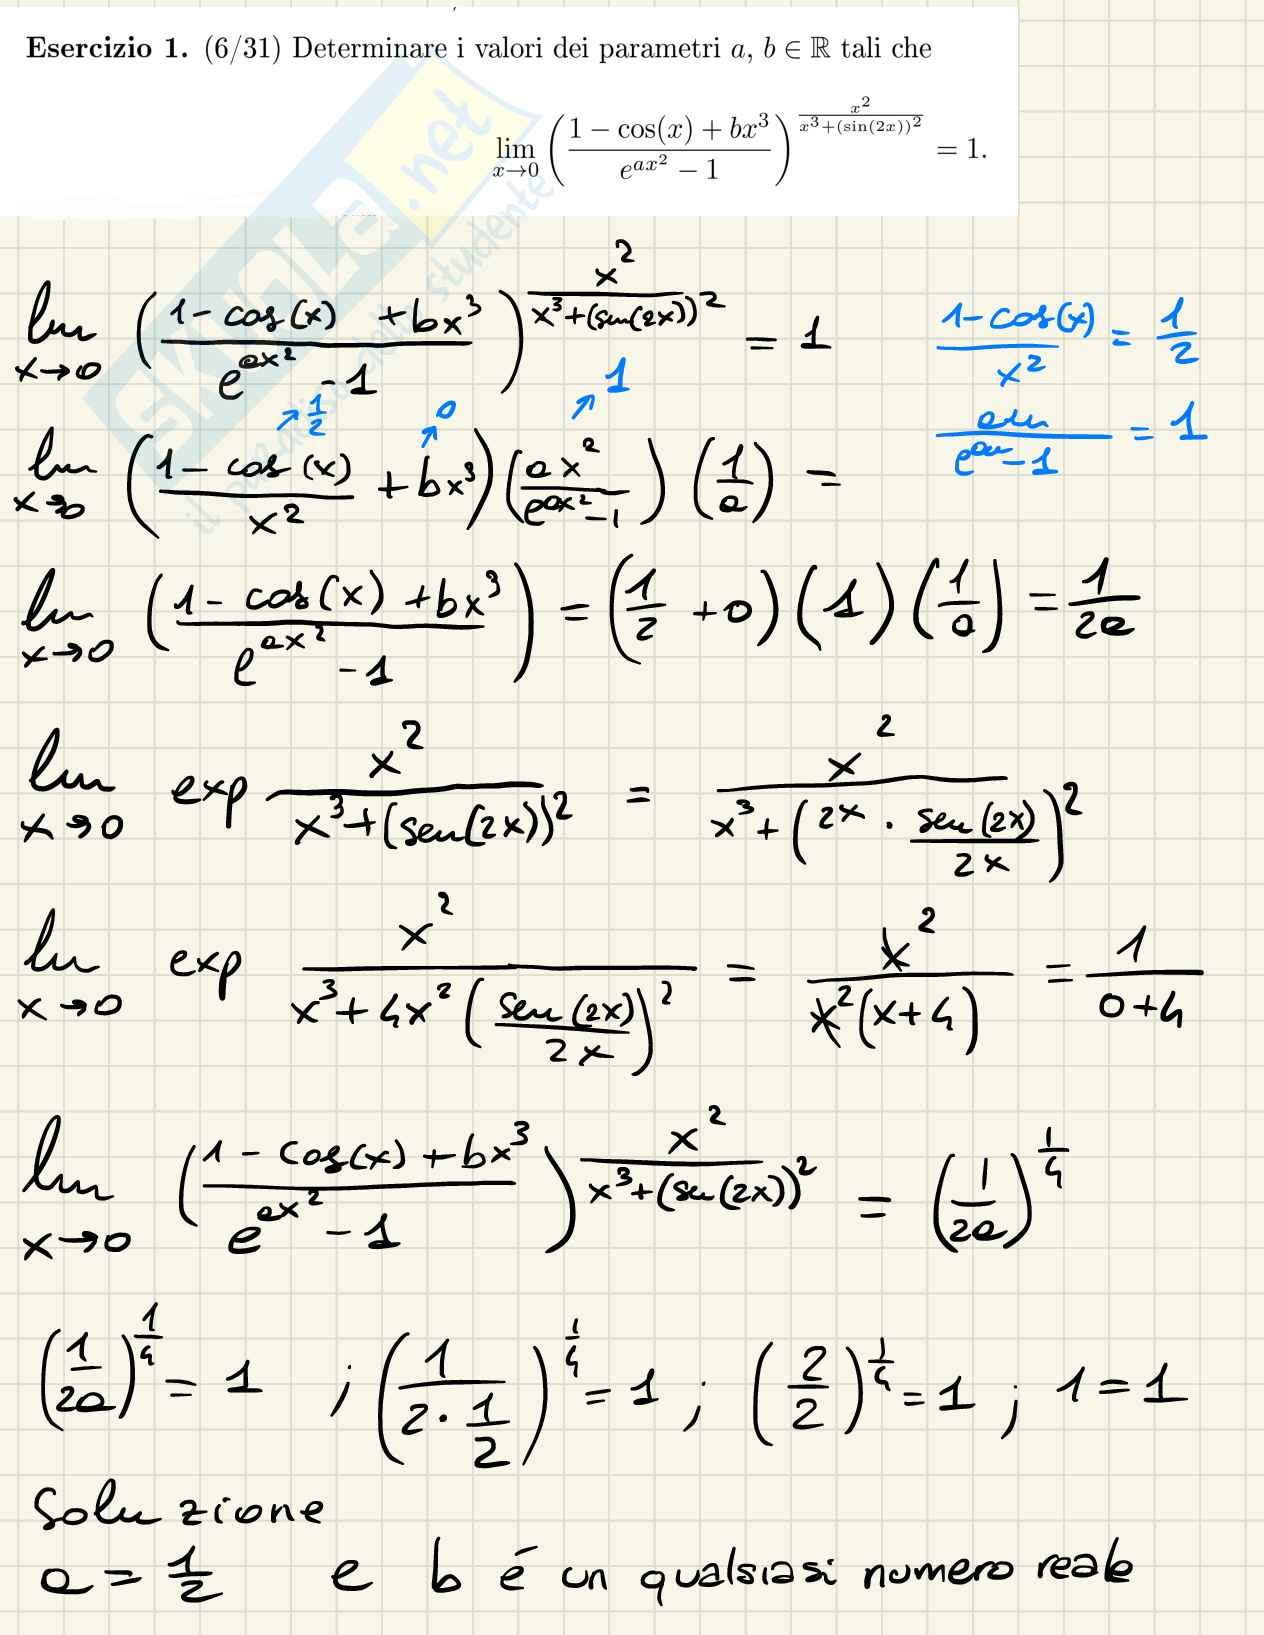 Esercizio 1. (6/31) Determinare i valori dei parametri a, b ∈ ℝ tali che
lim x→0 ((1 − cos(x) + bx³)/(e^{ax²} − 1))^{x²/(x³+(sin(2x))²)} = 1.
SKUOLA.net
il paradiso dello studente
lim x→0 ((1 - cos(x) + bx³)/(e^{ax²} - 1))^{x²/(x³+(sen(2x))²)} = 1
(1-cos(x))/x² = 1/2
→ 1/2 → 0 → 1
au/(e^{au} - 1) = 1
lim x→0 ((1 - cos(x))/x² + bx³)(ax²/(e^{ax²} - 1))(1/a) =
lim x→0 ((1 - cos(x) + bx³)/(e^{ax²} - 1)) = (1/2 + 0)(1)(1/a) = 1/2a
lim x→0 exp x²/(x³+(sen(2x))²) = x²/(x³+(2x · sen(2x)/2x)²)
lim x→0 exp x²/(x³+4x²(sen(2x)/2x)²) = x²/(x²(x+4)) = 1/(0+4)
lim x→0 ((1 - cos(x) + bx³)/(e^{ax²} - 1))^{x²/(x³+(sen(2x))²)} = (1/2a)^{1/4}
(1/2a)^{1/4} = 1 ; (1/(2·1/2))^{1/4} = 1 ; (2/2)^{1/4} = 1 ; 1 = 1
Soluzione
a = 1/2 e b é un qualsiasi numero reale